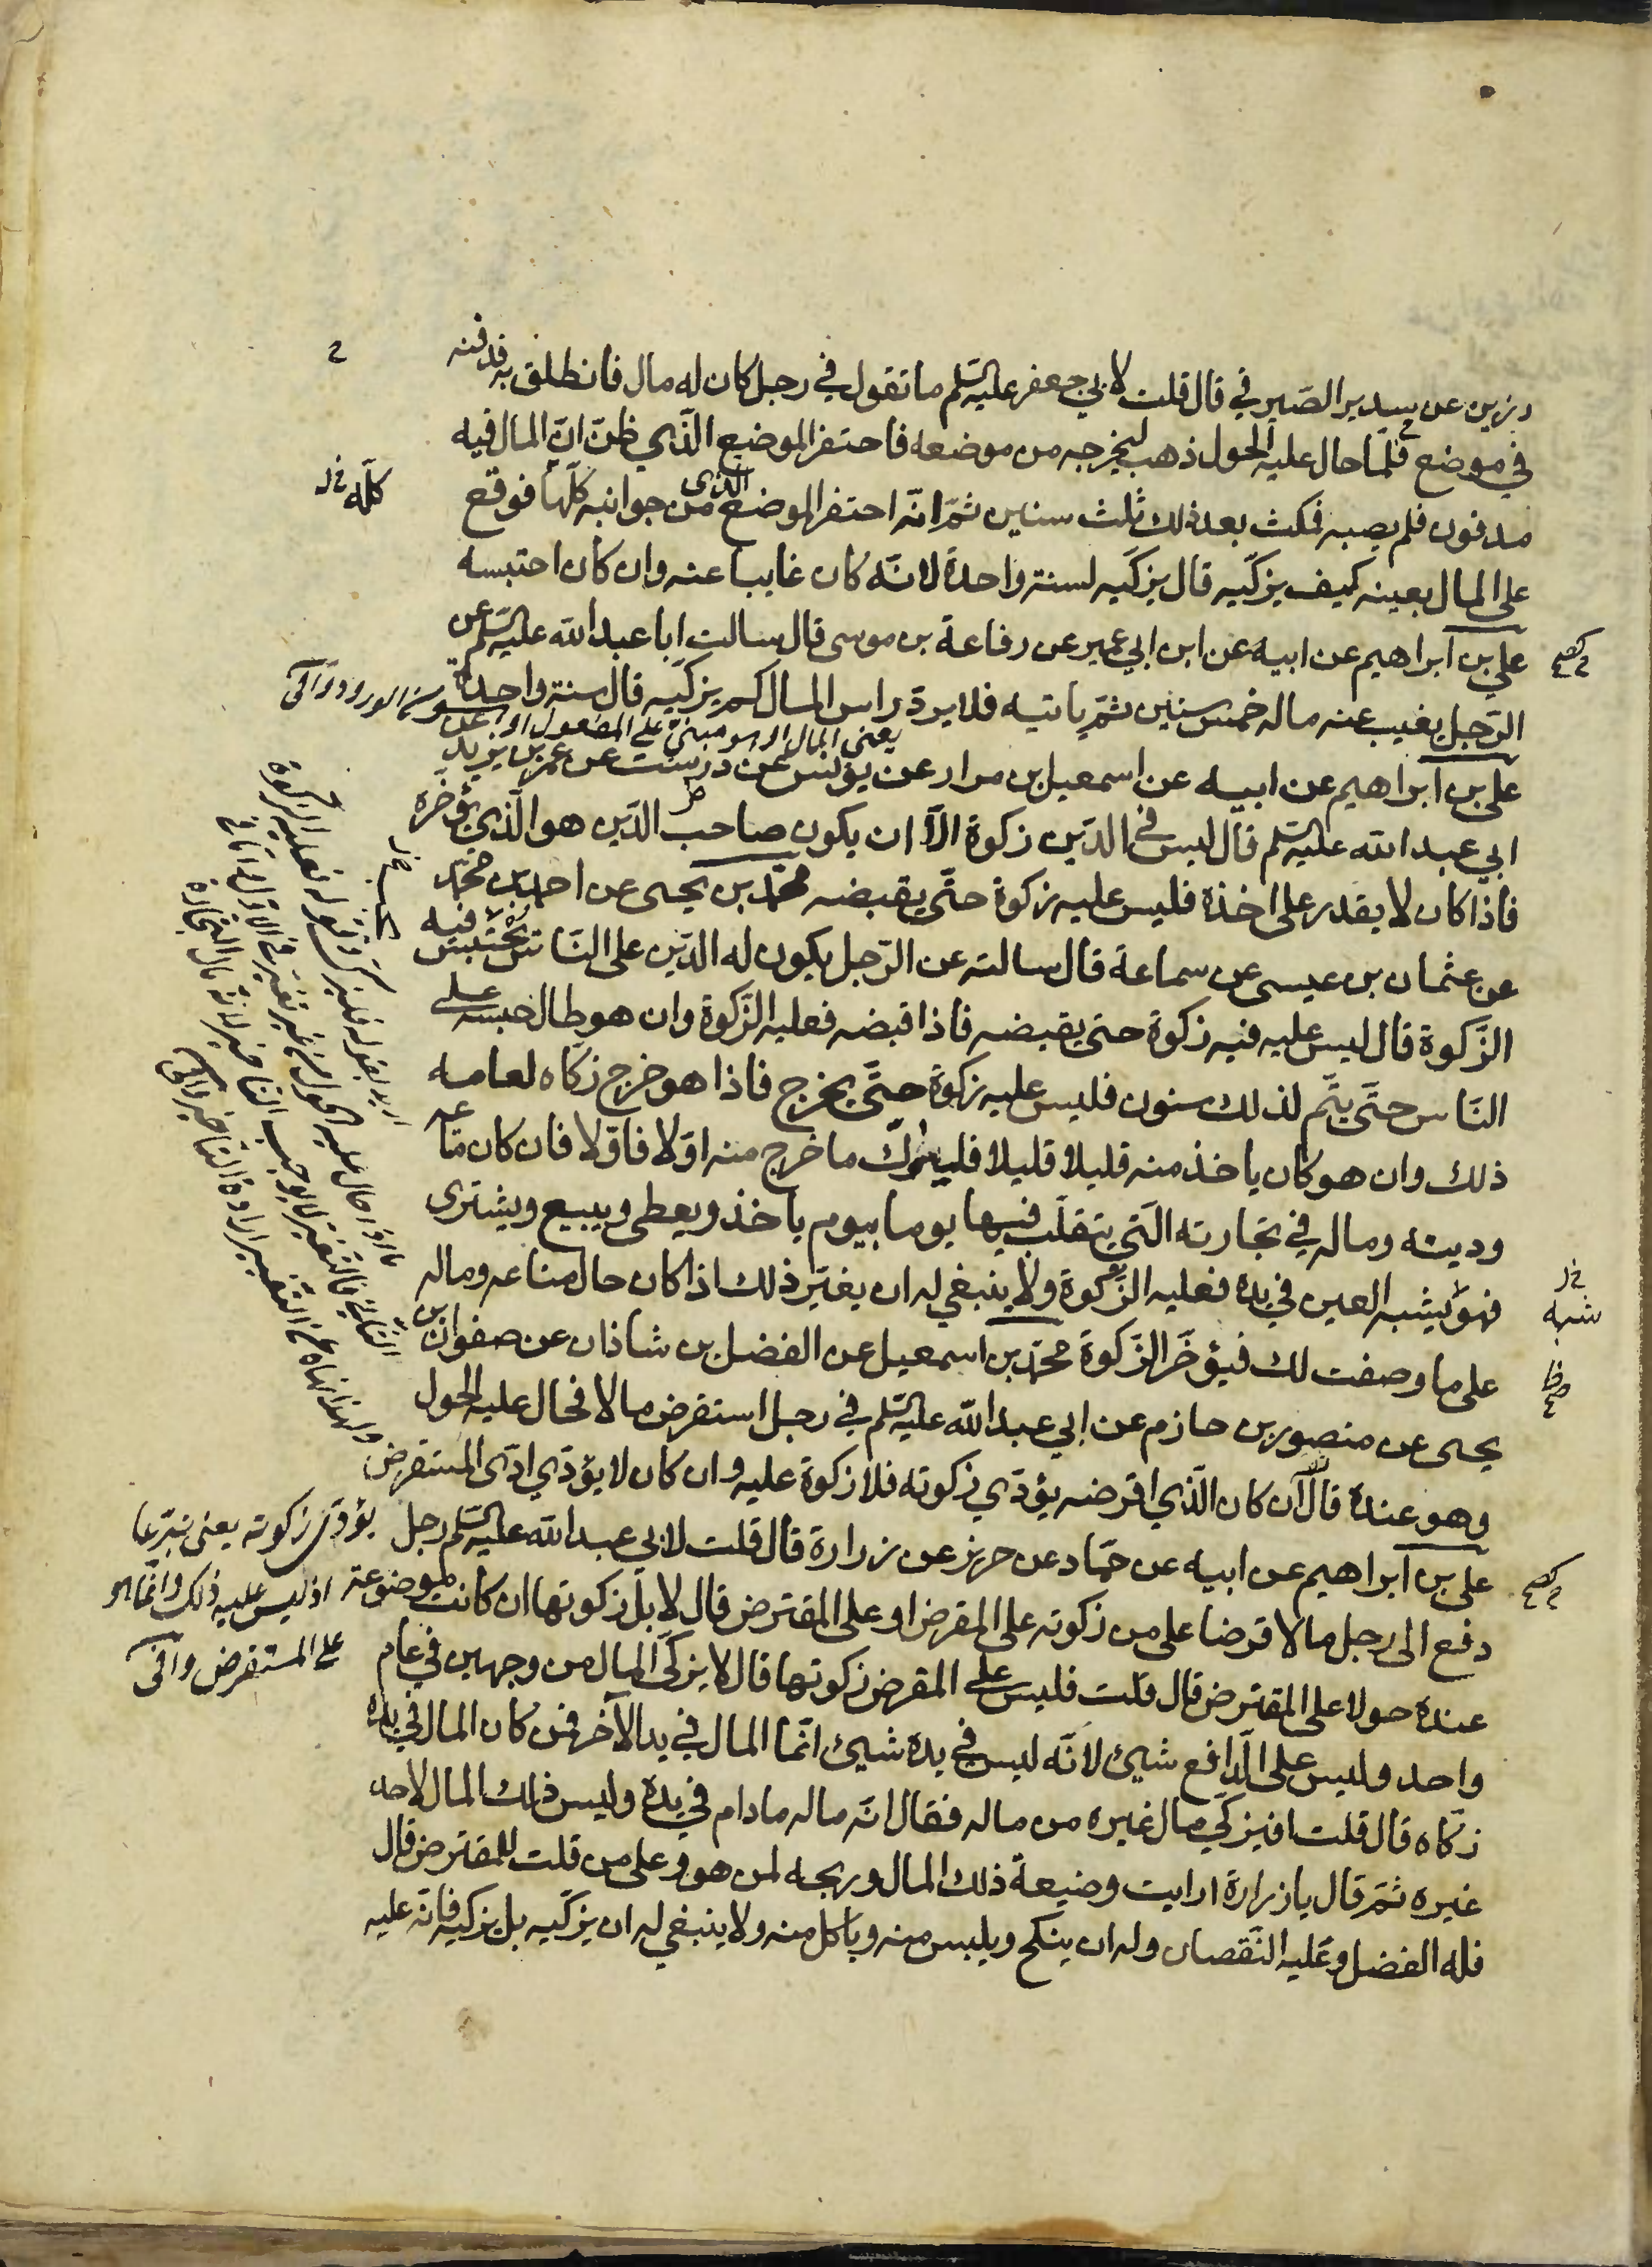 رزين عن سدير الصيرفي قال قلت لابي جعفر عليه السلم ما تقول في رجل كان له مال فانطلق به فدفنه
في موضع فلما حال عليه الحول ذهب ليخرجه من موضعه فاحتفر الموضع الذي ظن ان المال فيه
مدفون فلم يصبه فمكث بعد ذلك ثلث سنين ثم انه احتفر الموضع الذى من جوانبه كلها فوقع
كله خ ل
على المال بعينه كيف يزكيه قال يزكيه لسنة واحدة لانه كان غايبا عنه وان كان احتبسه
علي بن ابراهيم عن ابيه عن ابن ابي عمير عن رفاعة بن موسى قال سالت ابا عبد الله عليه السلم عن
الرجل يغيب عنه ماله خمس سنين ثم ياتيه فلا يرد راس المال كم يزكيه قال سنة واحدة
علي بن ابراهيم عن ابيه عن اسمعيل بن مرار عن يونس عن درست عن عمر بن يزيد عن
ابي عبد الله عليه السلم قال ليس في الدين زكوة الا ان يكون صاحب الدين هو الذي يؤخره
فاذا كان لا يقدر على اخذه فليس عليه زكوة حتى يقبضه محمد بن يحيى عن احمد بن محمد
عن عثمان بن عيسى عن سماعة قال سالته عن الرجل يكون له الدين على الناس يحتبس فيه
الزكوة قال ليس عليه فيه زكوة حتى يقبضه فاذا قبضه فعليه الزكوة وان هو طال حبسه على
الناس حتى يتم لذلك سنون فليس عليه زكوة حتى يخرج فاذا هو خرج زكاه لعامه
ذلك وان هو كان ياخذ منه قليلا قليلا فليزك ما خرج منه اولا فاولا فان كان متاعه
ودينه وماله في تجارته التي يتقلب فيها يوما بيوم ياخذ ويعطى ويبيع ويشترى
فهو يشبه العين في يده فعليه الزكوة ولا ينبغي له ان يغير ذلك اذا كان حال متاعه وماله
شبه خ ل
على ما وصفت لك فيؤخر الزكوة محمد بن اسمعيل عن الفضل بن شاذان عن صفوان بن
يحيى عن منصور بن حازم عن ابي عبد الله عليه السلم في رجل استقرض مالا فحال عليه الحول
وهو عنده قال ان كان الذي اقرضه يؤدي زكوته فلا زكوة عليه وان كان لا يؤدي ادى المستقرض
علي بن ابراهيم عن ابيه عن حماد عن حريز عن زرارة قال قلت لابي عبد الله عليه السلم رجل
دفع الى رجل مالا قرضا على من زكوته على المقرض او على المقترض قال لا بل زكوتها ان كانت موضوعة
عنده حولا على المقترض قال قلت فليس على المقرض زكوتها قال لا يزكى المال من وجهين في عام
واحد وليس على الدافع شيئ لانه ليس في يده شيئ انما المال في يد الآخر فمن كان المال في يده
زكاه قال قلت افيزكي مال غيره من ماله فقال انه ماله مادام في يده وليس ذلك المال لاحد
غيره ثم قال يا زرارة ارايت وضيعة ذلك المال وربحه لمن هو وعلى من قلت للمقترض قال
فله الفضل وعليه النقصان وله ان ينكح ويلبس منه وياكل منه ولا ينبغي له ان يزكيه بل يزكيه فانه عليه
يؤدى زكوته يعنى تبرعا
اذ ليس عليه ذلك وانما هو
على المستقرض وافى